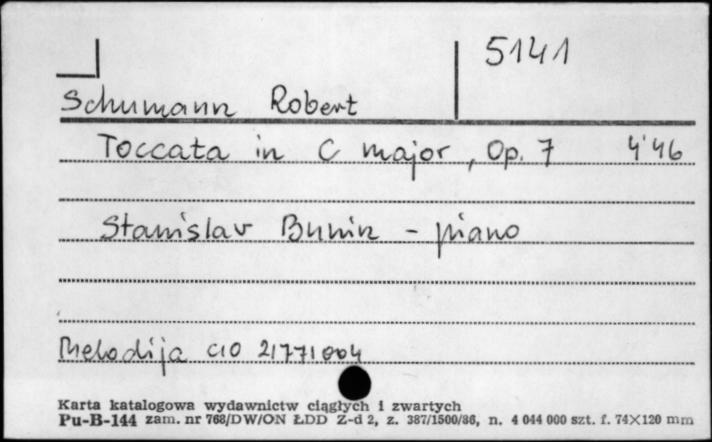 5141
Schumann Robert
Toccata in C major, Op. 7 4'46
Stanislav Bunin - piano
Melodija C10 21771004
Karta katalogowa wydawnictw ciągłych i zwartych
Pu-B-144 zam. nr 768/DW/ON ŁDD Z-d 2, z. 387/1500/86, n. 4 044 000 szt. f. 74×120 mm